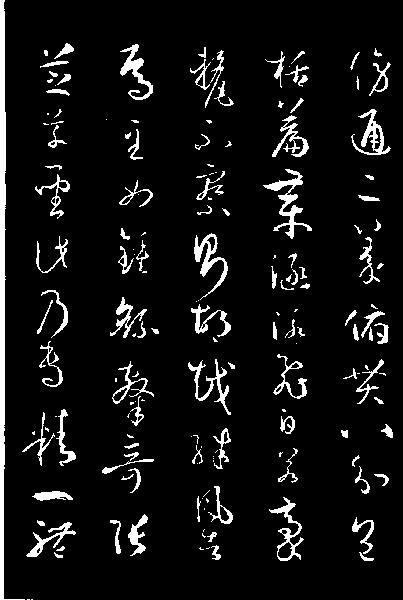 傍通二篆俯貫八分包
括篇章涵泳飛白若毫
氂不察則胡越殊風者
焉至如鍾繇隸奇張
芝草聖此乃專精一體